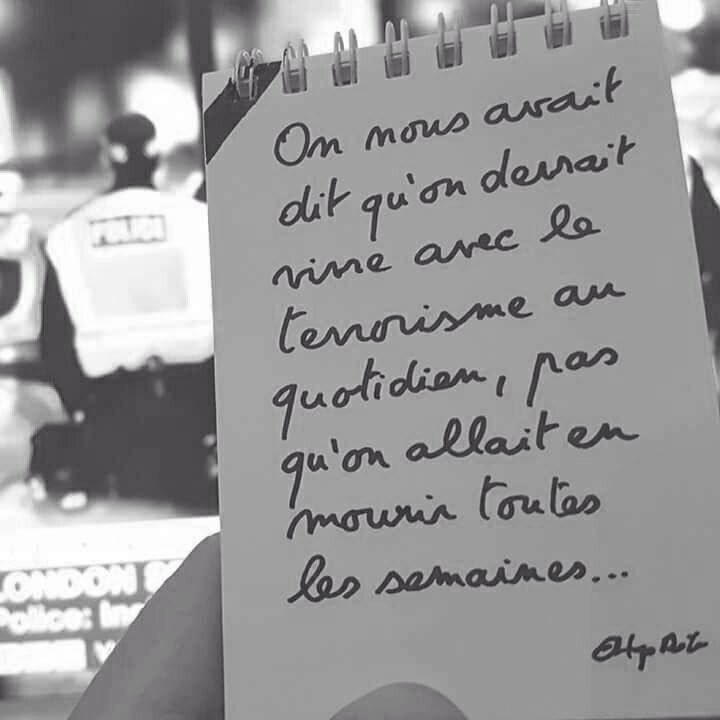 On nous avait
dit qu'on devrait
vivre avec le
terrorisme au
quotidien, pas
qu'on allait en
mourir toutes
les semaines...
POLICE
LONDON
Police: